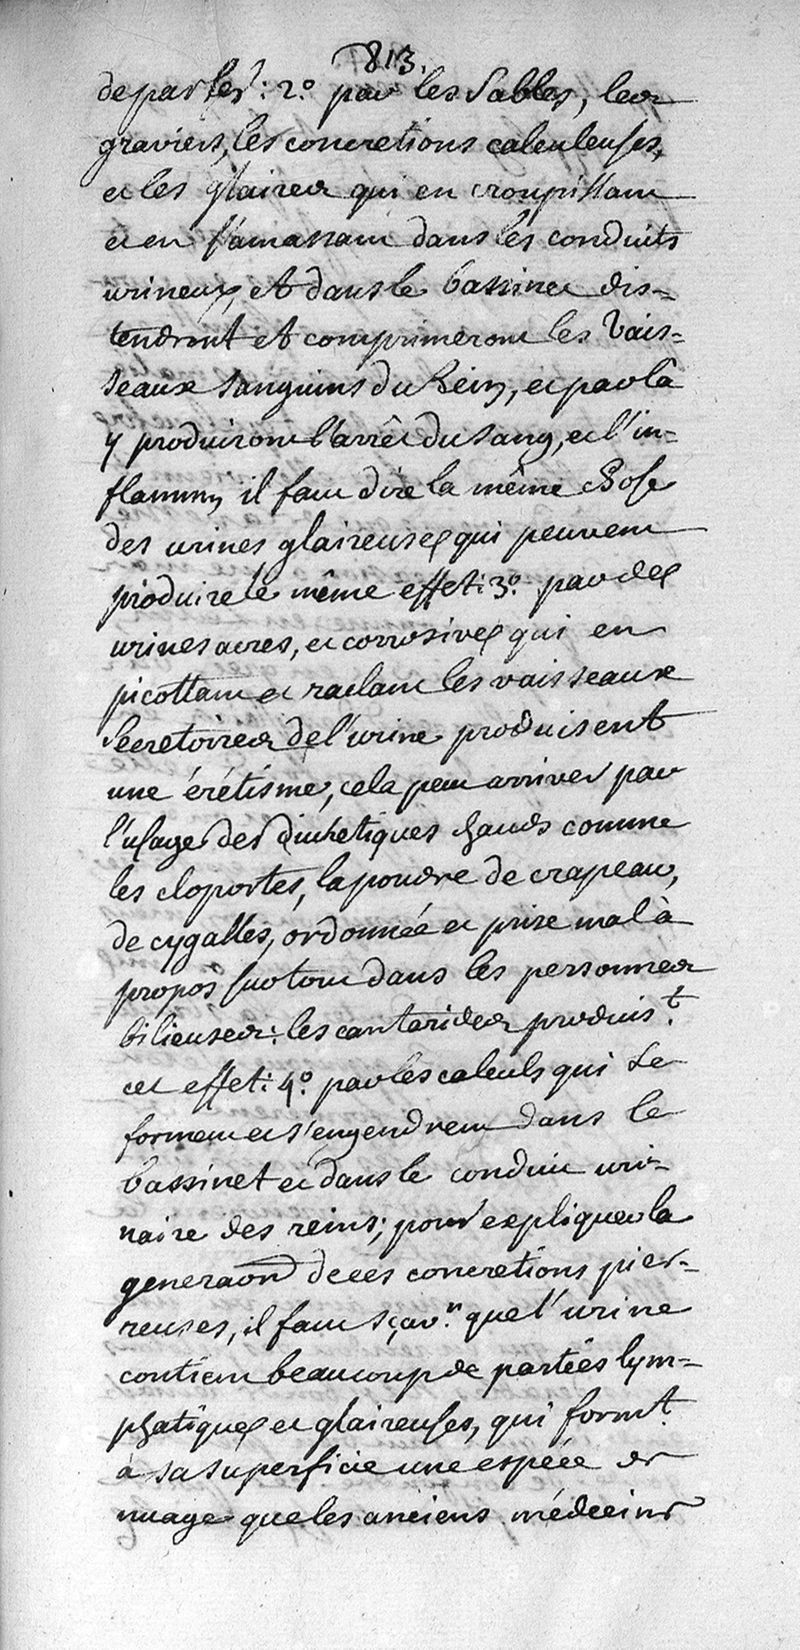 813.
de parler: 2.° par les Sables, les
graviers, les concretions calculeuses,
et les glaires qui en croupissant
et en s'amassant dans les conduits
urineux, et dans le bassinet dis=
tendront et comprimeront les Vais=
seaux sanguins du Rein, et par là
y produiront l'arrêt du sang, et l'in=
flamm, il faut dire la même chose
des urines glaireuses qui peuvent
produire le même effet: 3.° par des
urines acres, et corrosives qui en
picottant et raclant les vaisseaux
Secretoires de l'urine produisent
une érétisme, cela peut arriver par
l'usage des diuhetiques chauds comme
les cloportes, la poudre de crapeau,
de cygalles, ordonnée et prise mal à
propos surtout dans les personnes
bilieuses: les cantarides produis.t
cet effet: 4.° par les calculs qui se
forment et s'engendrent dans le
bassinet et dans le conduit uri-
naire des reins; pour expliquer la
generaõn de ces concretions pier-
reuses, il faut sçav.r que l'urine
contient beaucoup de partées lym=
phatiques et glaireuses, qui formt.
à sa superficie une espéce de
nuage que les anciens médecins